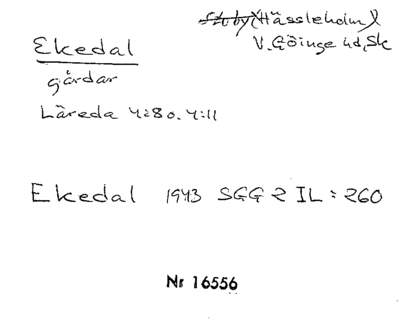 Ekedal
gårdar
Läreda 4:80. 4:11
(Hässleholm)
V. Göinge hd, Sk
Ekedal 1943 SGG 2 IL: 260
Nr 16556